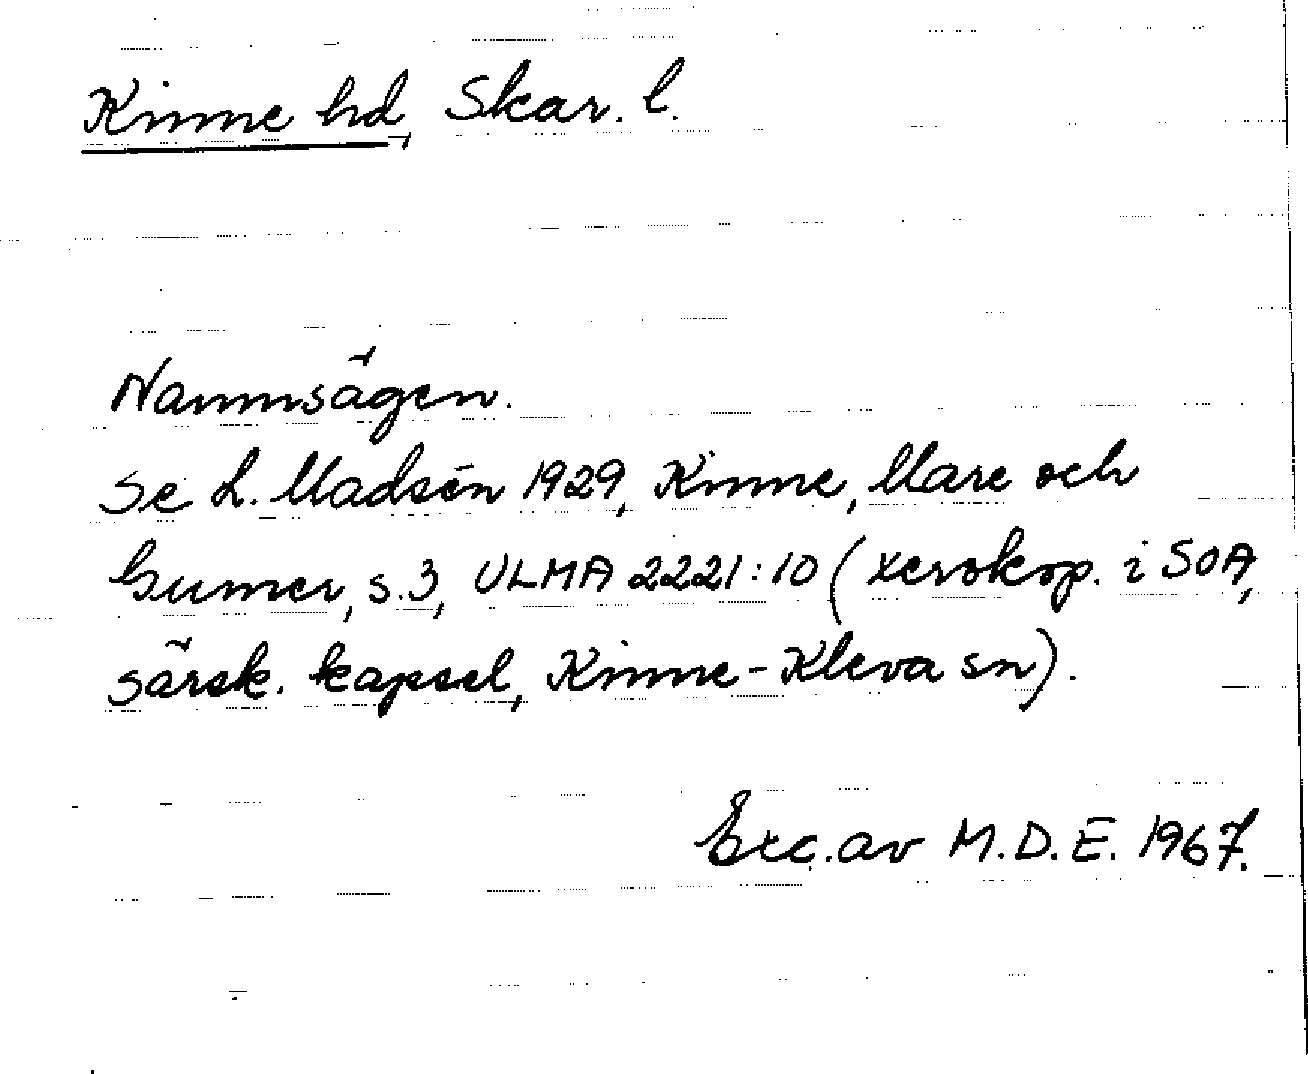 Kinne hd, Skar. l.
Namnsägen.
Se L. Madsén 1929, Kinne, Mare och
Gumer, s. 3, ULMA 2221:10 (xerokop. i SOA,
särsk. kapsel, Kinne-Kleva sn).
Exc. av M.D.E. 1967.